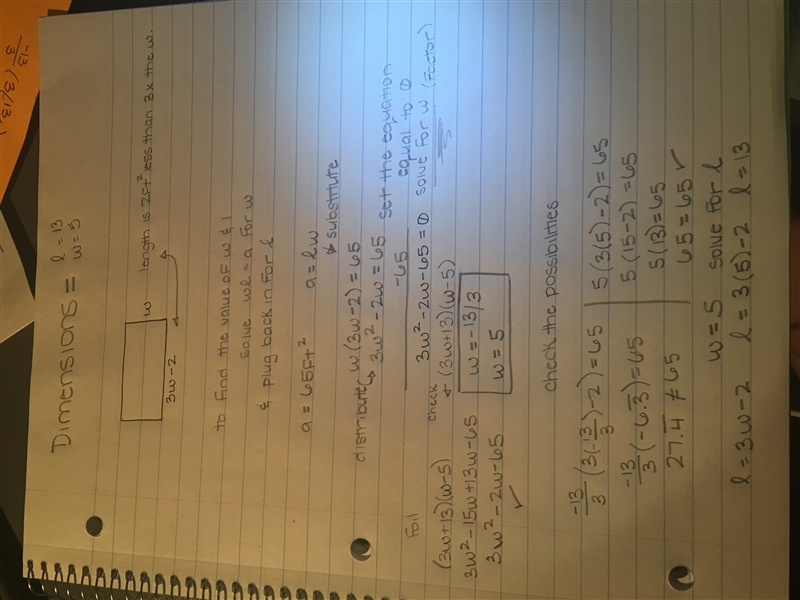 Dimensions = l = 13
w = 5
w length is 2ft² less than 3x the w.
3w-2
to find the value of w & l
solve wl = a for w
& plug back in for l
a = 65ft² a = lw
↳ substitute
distribute w(3w-2) = 65
↳ 3w² - 2w = 65 set the equation
-65 equal to 0
3w² - 2w - 65 = 0 solve for w (factor)
check ↲ (3w+13)(w-5)
w = -13/3
w = 5
Foil
(3w+13)(w-5)
3w² - 15w + 13w - 65
3w² - 2w - 65
✓
check the possibilities
-13/3 (3(-13/3) - 2) = 65
-13/3 (-6.3̅) = 65
27.4̅ ≠ 65
5(3(5) - 2) = 65
5(15-2) = 65
5(13) = 65
65 = 65 ✓
w = 5 solve for l
l = 3w - 2 l = 3(5) - 2 l = 13